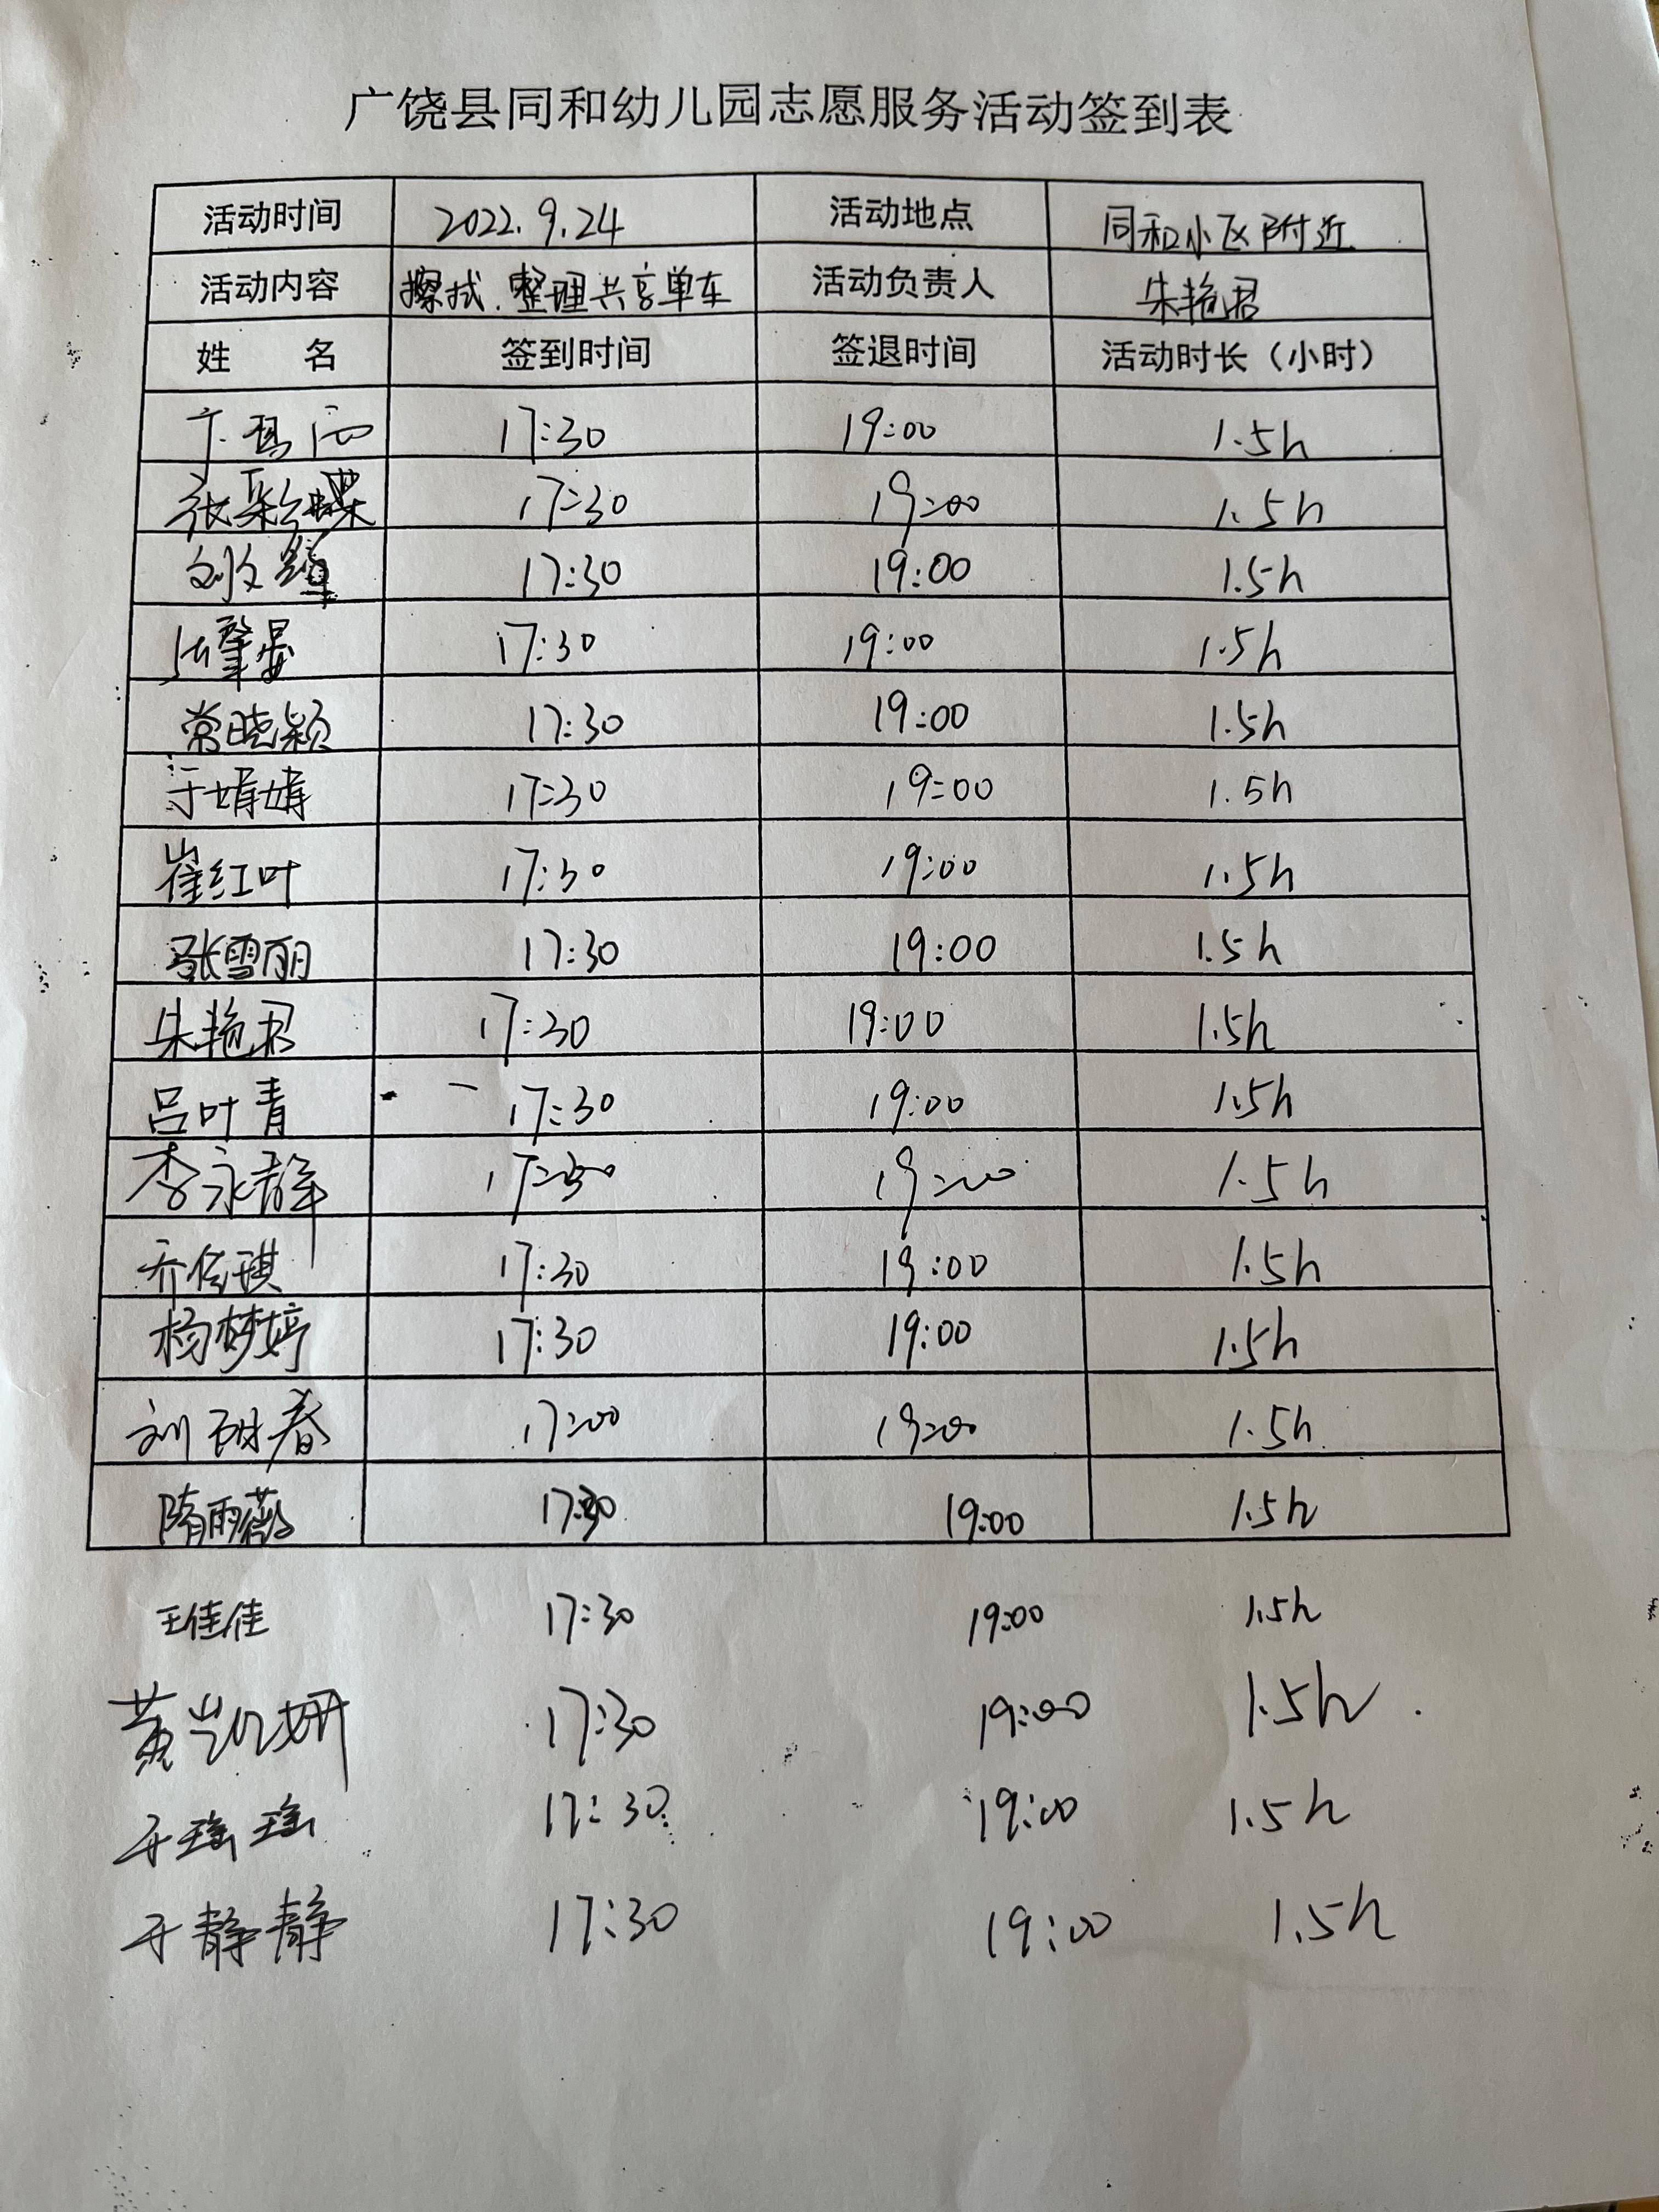 广饶县同和幼儿园志愿服务活动签到表
活动时间 2022.9.24 活动地点 同和小区附近
活动内容 擦拭.整理共享单车 活动负责人 朱艳君
姓 名 签到时间 签退时间 活动时长（小时）
17:30 19:00 1.5h
张彩蝶 17:30 19:00 1.5h
17:30 19:00 1.5h
17:30 19:00 1.5h
常晓颖 17:30 19:00 1.5h
于婧婧 17:30 19:00 1.5h
崔红叶 17:30 19:00 1.5h
张雪丽 17:30 19:00 1.5h
朱艳君 17:30 19:00 1.5h
吕叶青 17:30 19:00 1.5h
李永静 17:30 19:00 1.5h
17:30 19:00 1.5h
杨梦婷 17:30 19:00 1.5h
17:00 19:00 1.5h
隋雨薇 17:30 19:00 1.5h
王佳佳 17:30 19:00 1.5h
黄凯妍 17:30 19:00 1.5h
于瑶瑶 17:30 19:00 1.5h
于静静 17:30 19:00 1.5h